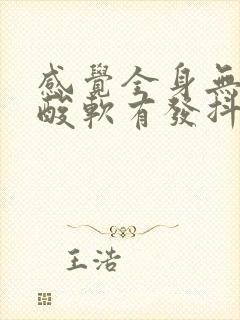 感覺全身無
酸軟有發抖
王浩